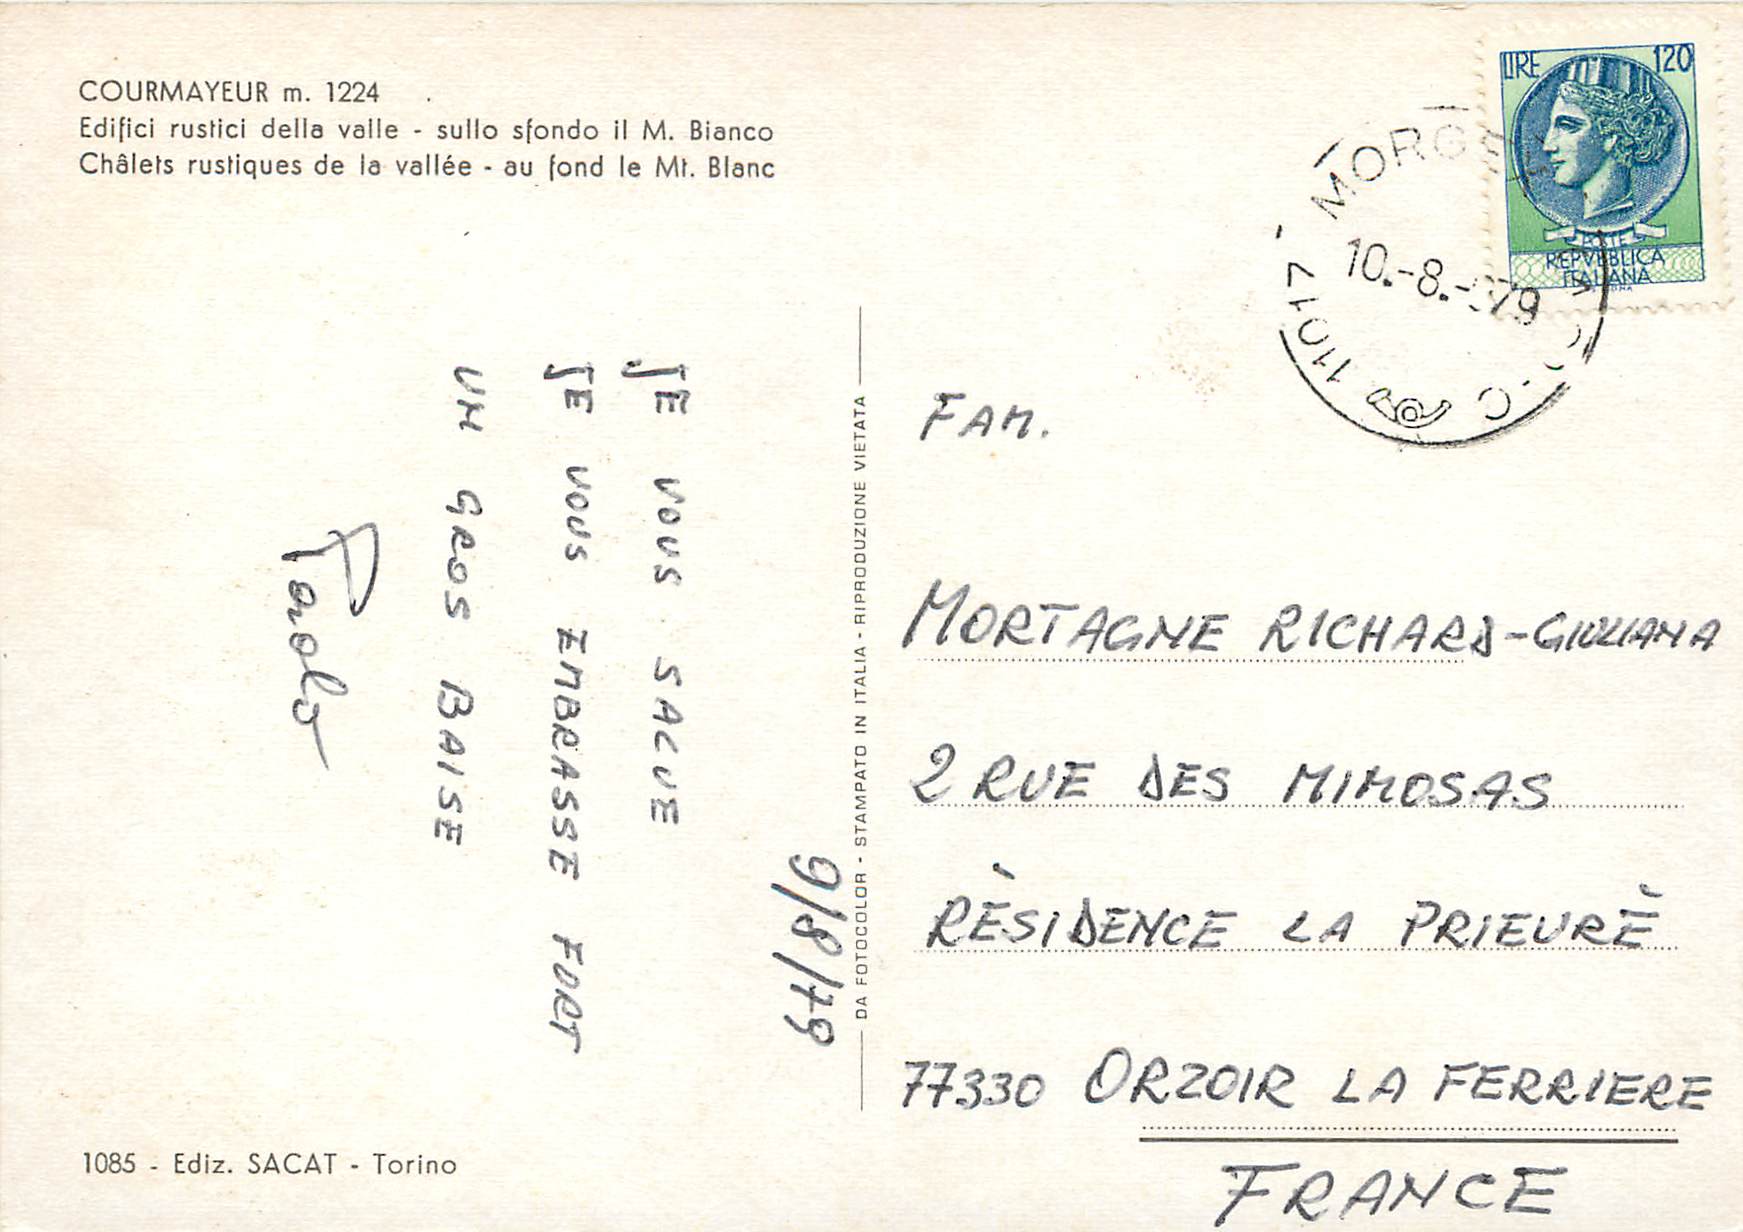 COURMAYEUR m. 1224
Edifici rustici della valle - sullo sfondo il M. Bianco
Châlets rustiques de la vallée - au fond le Mt. Blanc
9/8/79
JE VOUS SALUE
JE VOUS EMBRASSE FORT
UN GROS BAISE
Paolo
1085 - Ediz. SACAT - Torino
DA FOTOCOLOR - STAMPATO IN ITALIA - RIPRODUZIONE VIETATA
LIRE 120
POSTE
REPVBBLICA
ITALIANA
MORGEX
10.-8.-79
11017
FAM.
MORTAGNE RICHARD-GIULIANA
2 RUE DES MIMOSAS
RÉSIDENCE LA PRIEURÉ
77330 ORZOIR LA FERRIERE
FRANCE